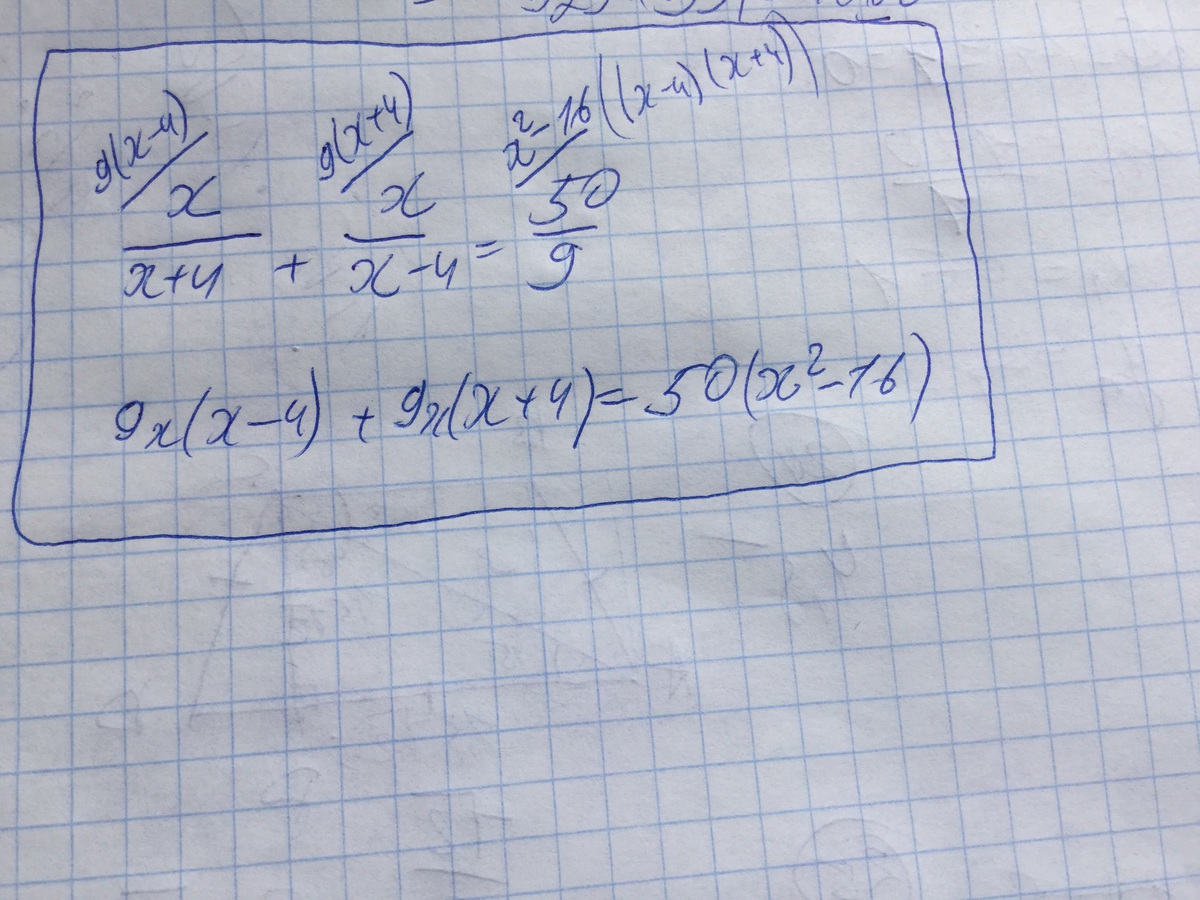 9(x-4) 9(x+4) x²-16((x-4)(x+4))
x/(x+4) + x/(x-4) = 50/9
9x(x-4) + 9x(x+4) = 50(x²-16)